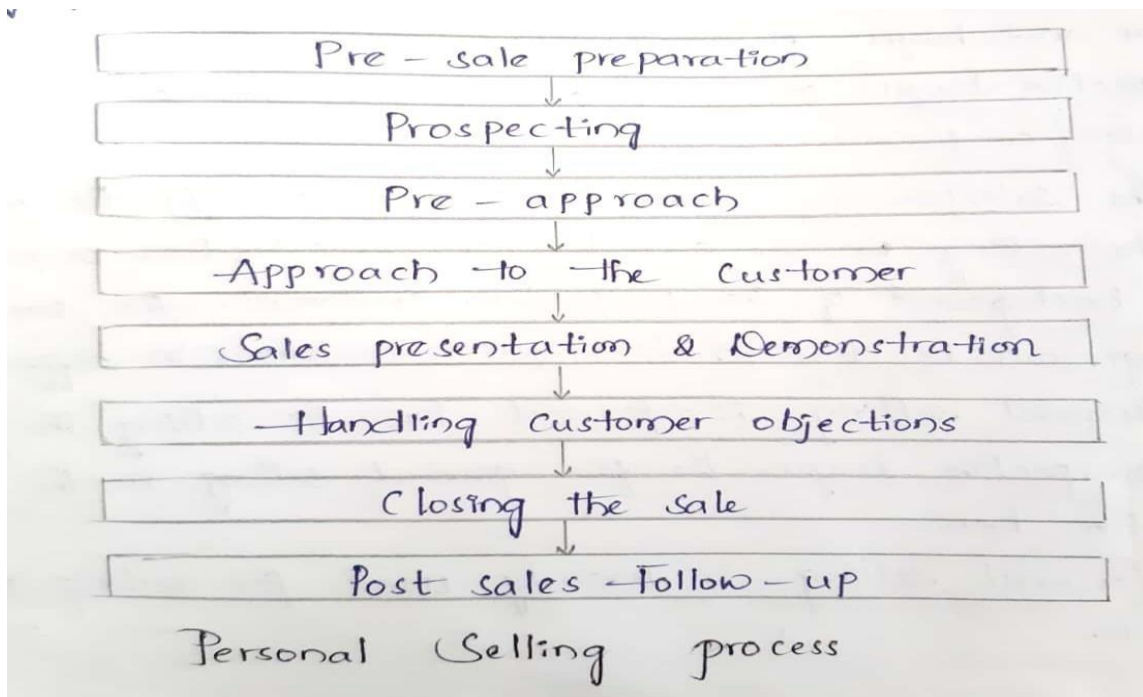 Pre - sale preparation
Prospecting
Pre - approach
Approach to the customer
Sales presentation & Demonstration
Handling customer objections
Closing the sale
Post sales Follow - up
Personal Selling process